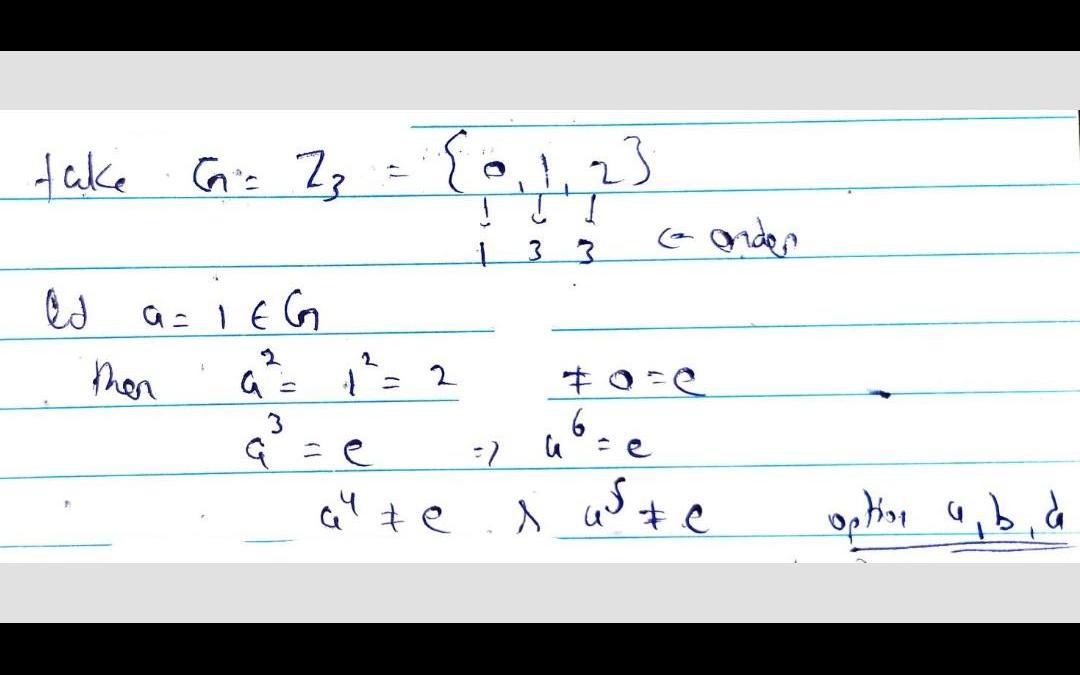 take G = Z₃ = {0, 1, 2}
↓ ↓ ↓
1 3 3 ← order
let a = 1 ∈ G
then a² = 1² = 2 ≠ 0 = e
a³ = e ⇒ a⁶ = e
a⁴ ≠ e & a⁵ ≠ e option a, b, d